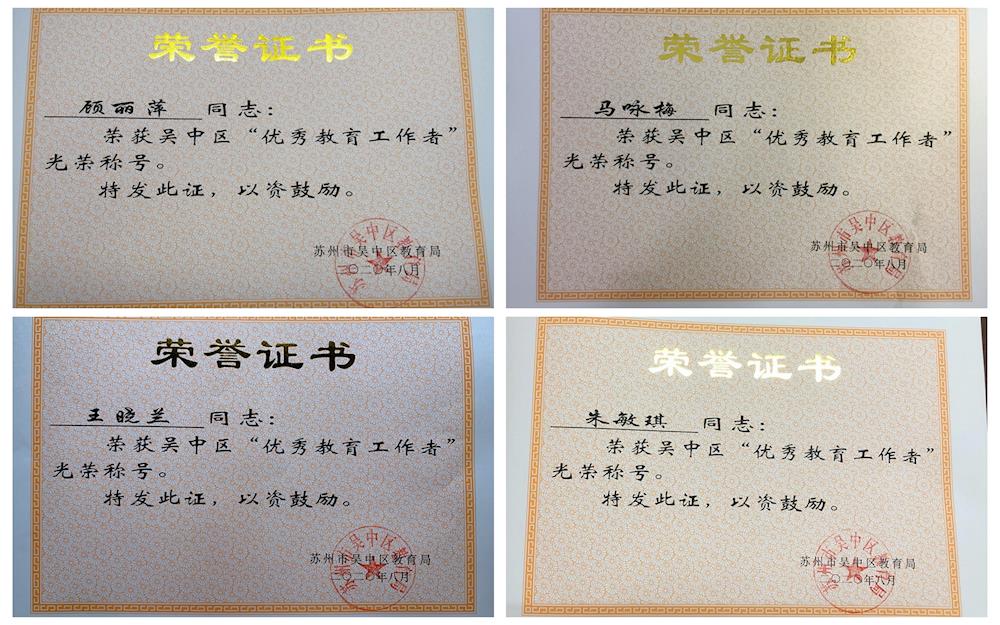 荣誉证书
顾丽萍 同志：
荣获吴中区“优秀教育工作者”
光荣称号。
特发此证，以资鼓励。
苏州市吴中区教育局
二〇二〇年八月
荣誉证书
马咏梅 同志：
荣获吴中区“优秀教育工作者”
光荣称号。
特发此证，以资鼓励。
苏州市吴中区教育局
二〇二〇年八月
荣誉证书
王晓兰 同志：
荣获吴中区“优秀教育工作者”
光荣称号。
特发此证，以资鼓励。
苏州市吴中区教育局
二〇二〇年八月
荣誉证书
朱敏琪 同志：
荣获吴中区“优秀教育工作者”
光荣称号。
特发此证，以资鼓励。
苏州市吴中区教育局
二〇二〇年八月